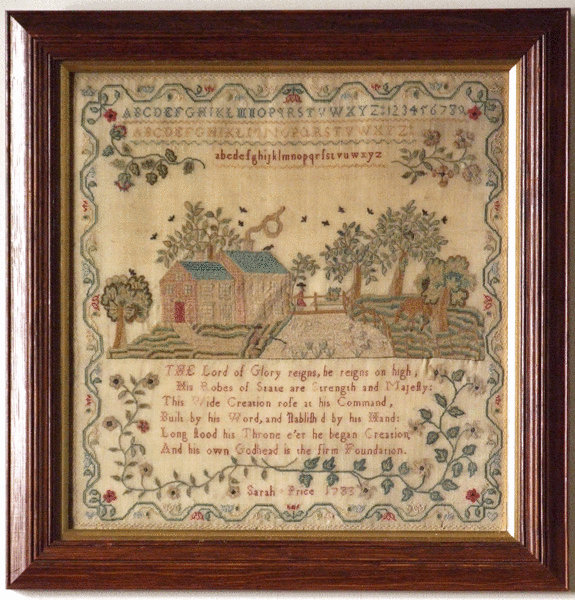 ABCDEFGHIJKLMNOPQRSTVWXYZ:123456789
ABCDEFGHIJKLMNOPQRSTVWXYZ
abcdefghijklmnopqrſstvuwxyz
THE Lord of Glory reigns, he reigns on high,
His Robes of State are Strength and Majeſty:
This Wide Creation roſe at his Command,
Built by his Word, and ſtabliſh'd by his Hand:
Long ſtood his Throne e'er he began Creation,
And his own Godhead is the firm Foundation.
Sarah Price 1783